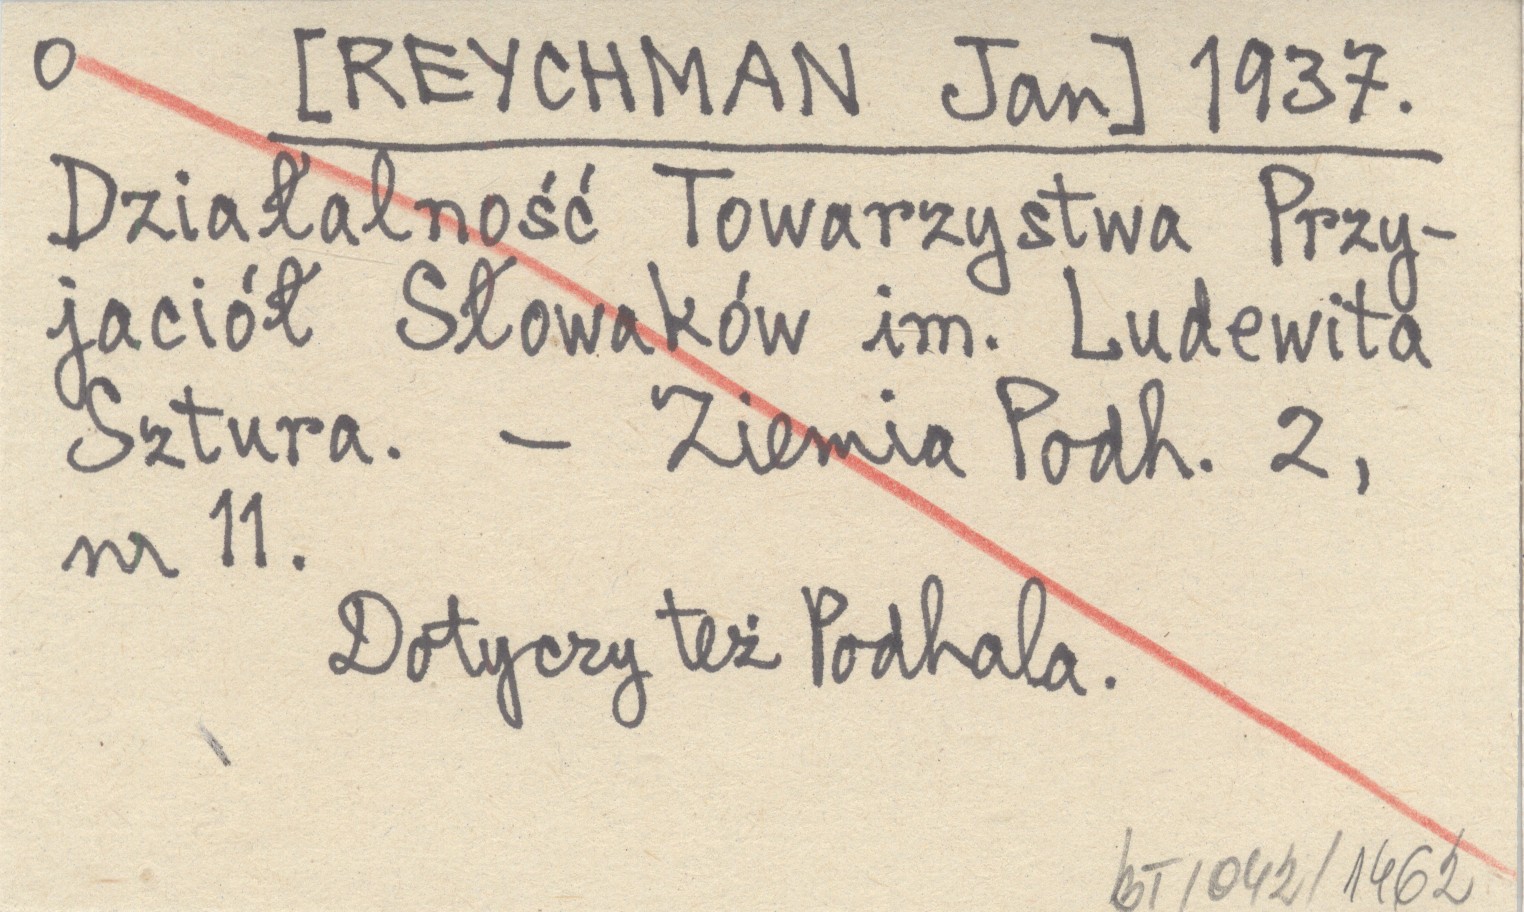 O [REYCHMAN Jan] 1937.
Działalność Towarzystwa Przy-
jaciół Słowaków im. Ludewita
Sztura. – Ziemia Podh. 2,
nr 11.
Dotyczy też Podhala.
BT/042/1462